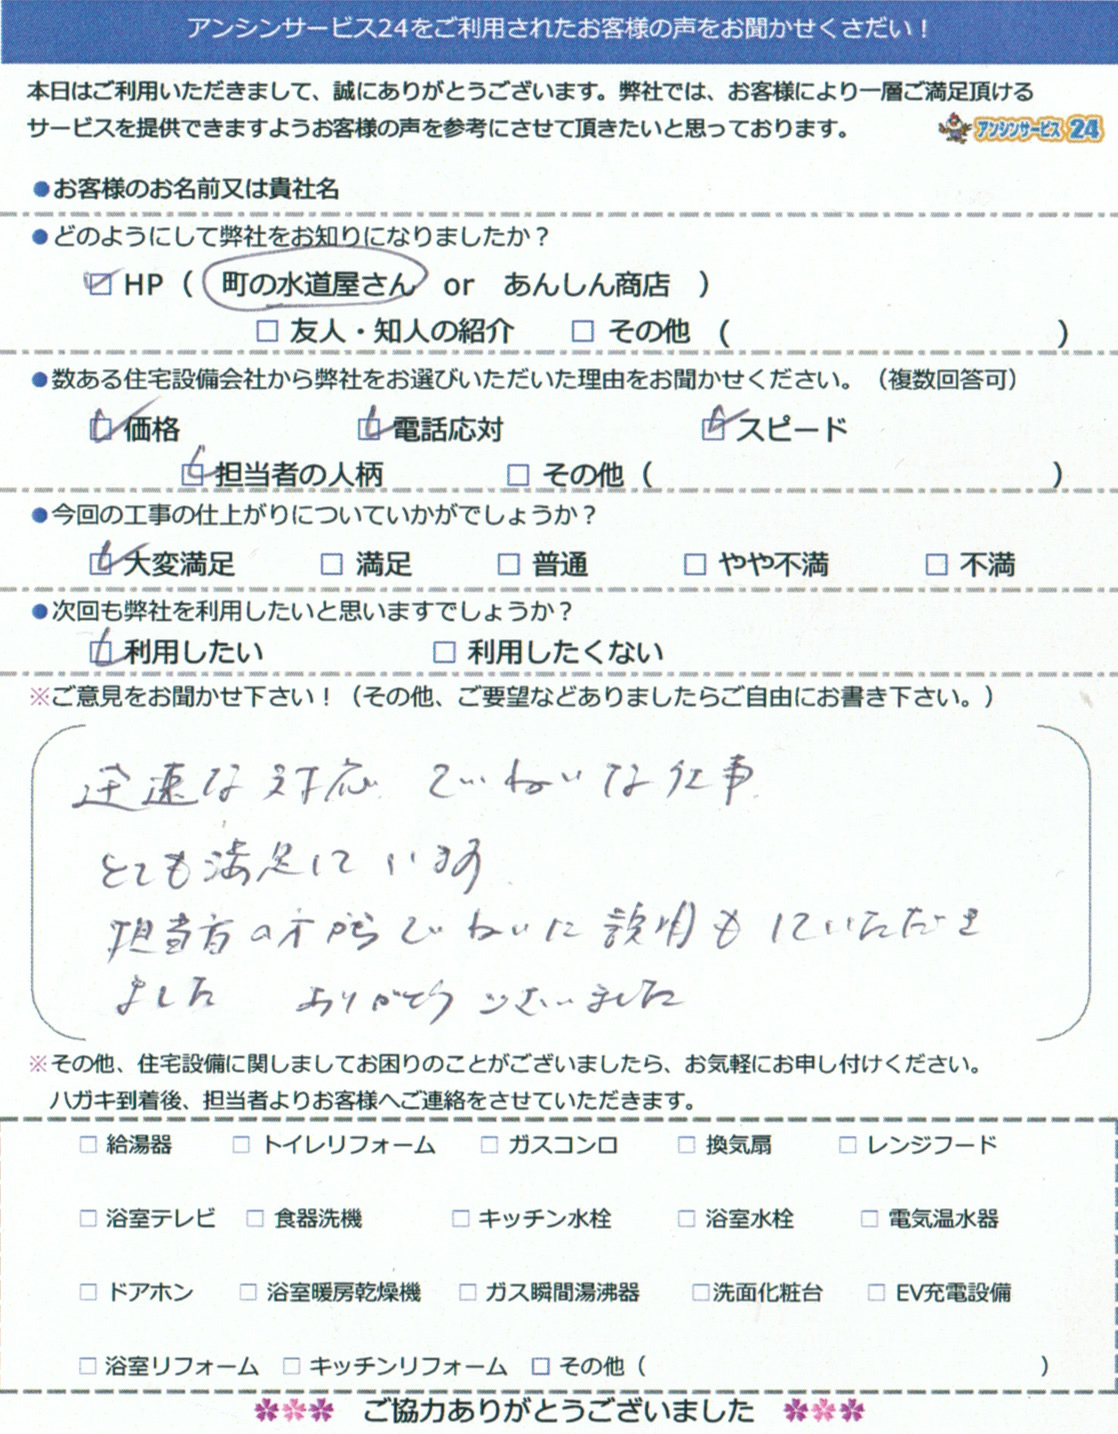 アンシンサービス24をご利用されたお客様の声をお聞かせくさだい！
本日はご利用いただきまして、誠にありがとうございます。弊社では、お客様により一層ご満足頂ける
サービスを提供できますようお客様の声を参考にさせて頂きたいと思っております。
アンシンサービス24
●お客様のお名前又は貴社名
●どのようにして弊社をお知りになりましたか？
☑ HP （ 町の水道屋さん or あんしん商店 ）
□ 友人・知人の紹介 □ その他 （ ）
●数ある住宅設備会社から弊社をお選びいただいた理由をお聞かせください。（複数回答可）
☑ 価格 ☑ 電話応対 ☑ スピード
☑ 担当者の人柄 □ その他（ ）
●今回の工事の仕上がりについていかがでしょうか？
☑ 大変満足 □ 満足 □ 普通 □ やや不満 □ 不満
●次回も弊社を利用したいと思いますでしょうか？
☑ 利用したい □ 利用したくない
※ご意見をお聞かせ下さい！（その他、ご要望などありましたらご自由にお書き下さい。）
迅速な対応 ていねいな仕事
とても満足しています
担当者の ていねいに説明もしていただき
ました ありがとうございました
※その他、住宅設備に関しましてお困りのことがございましたら、お気軽にお申し付けください。
ハガキ到着後、担当者よりお客様へご連絡をさせていただきます。
□ 給湯器 □ トイレリフォーム □ ガスコンロ □ 換気扇 □ レンジフード
□ 浴室テレビ □ 食器洗機 □ キッチン水栓 □ 浴室水栓 □ 電気温水器
□ ドアホン □ 浴室暖房乾燥機 □ ガス瞬間湯沸器 □洗面化粧台 □ EV充電設備
□ 浴室リフォーム □ キッチンリフォーム □ その他（ ）
ご協力ありがとうございました